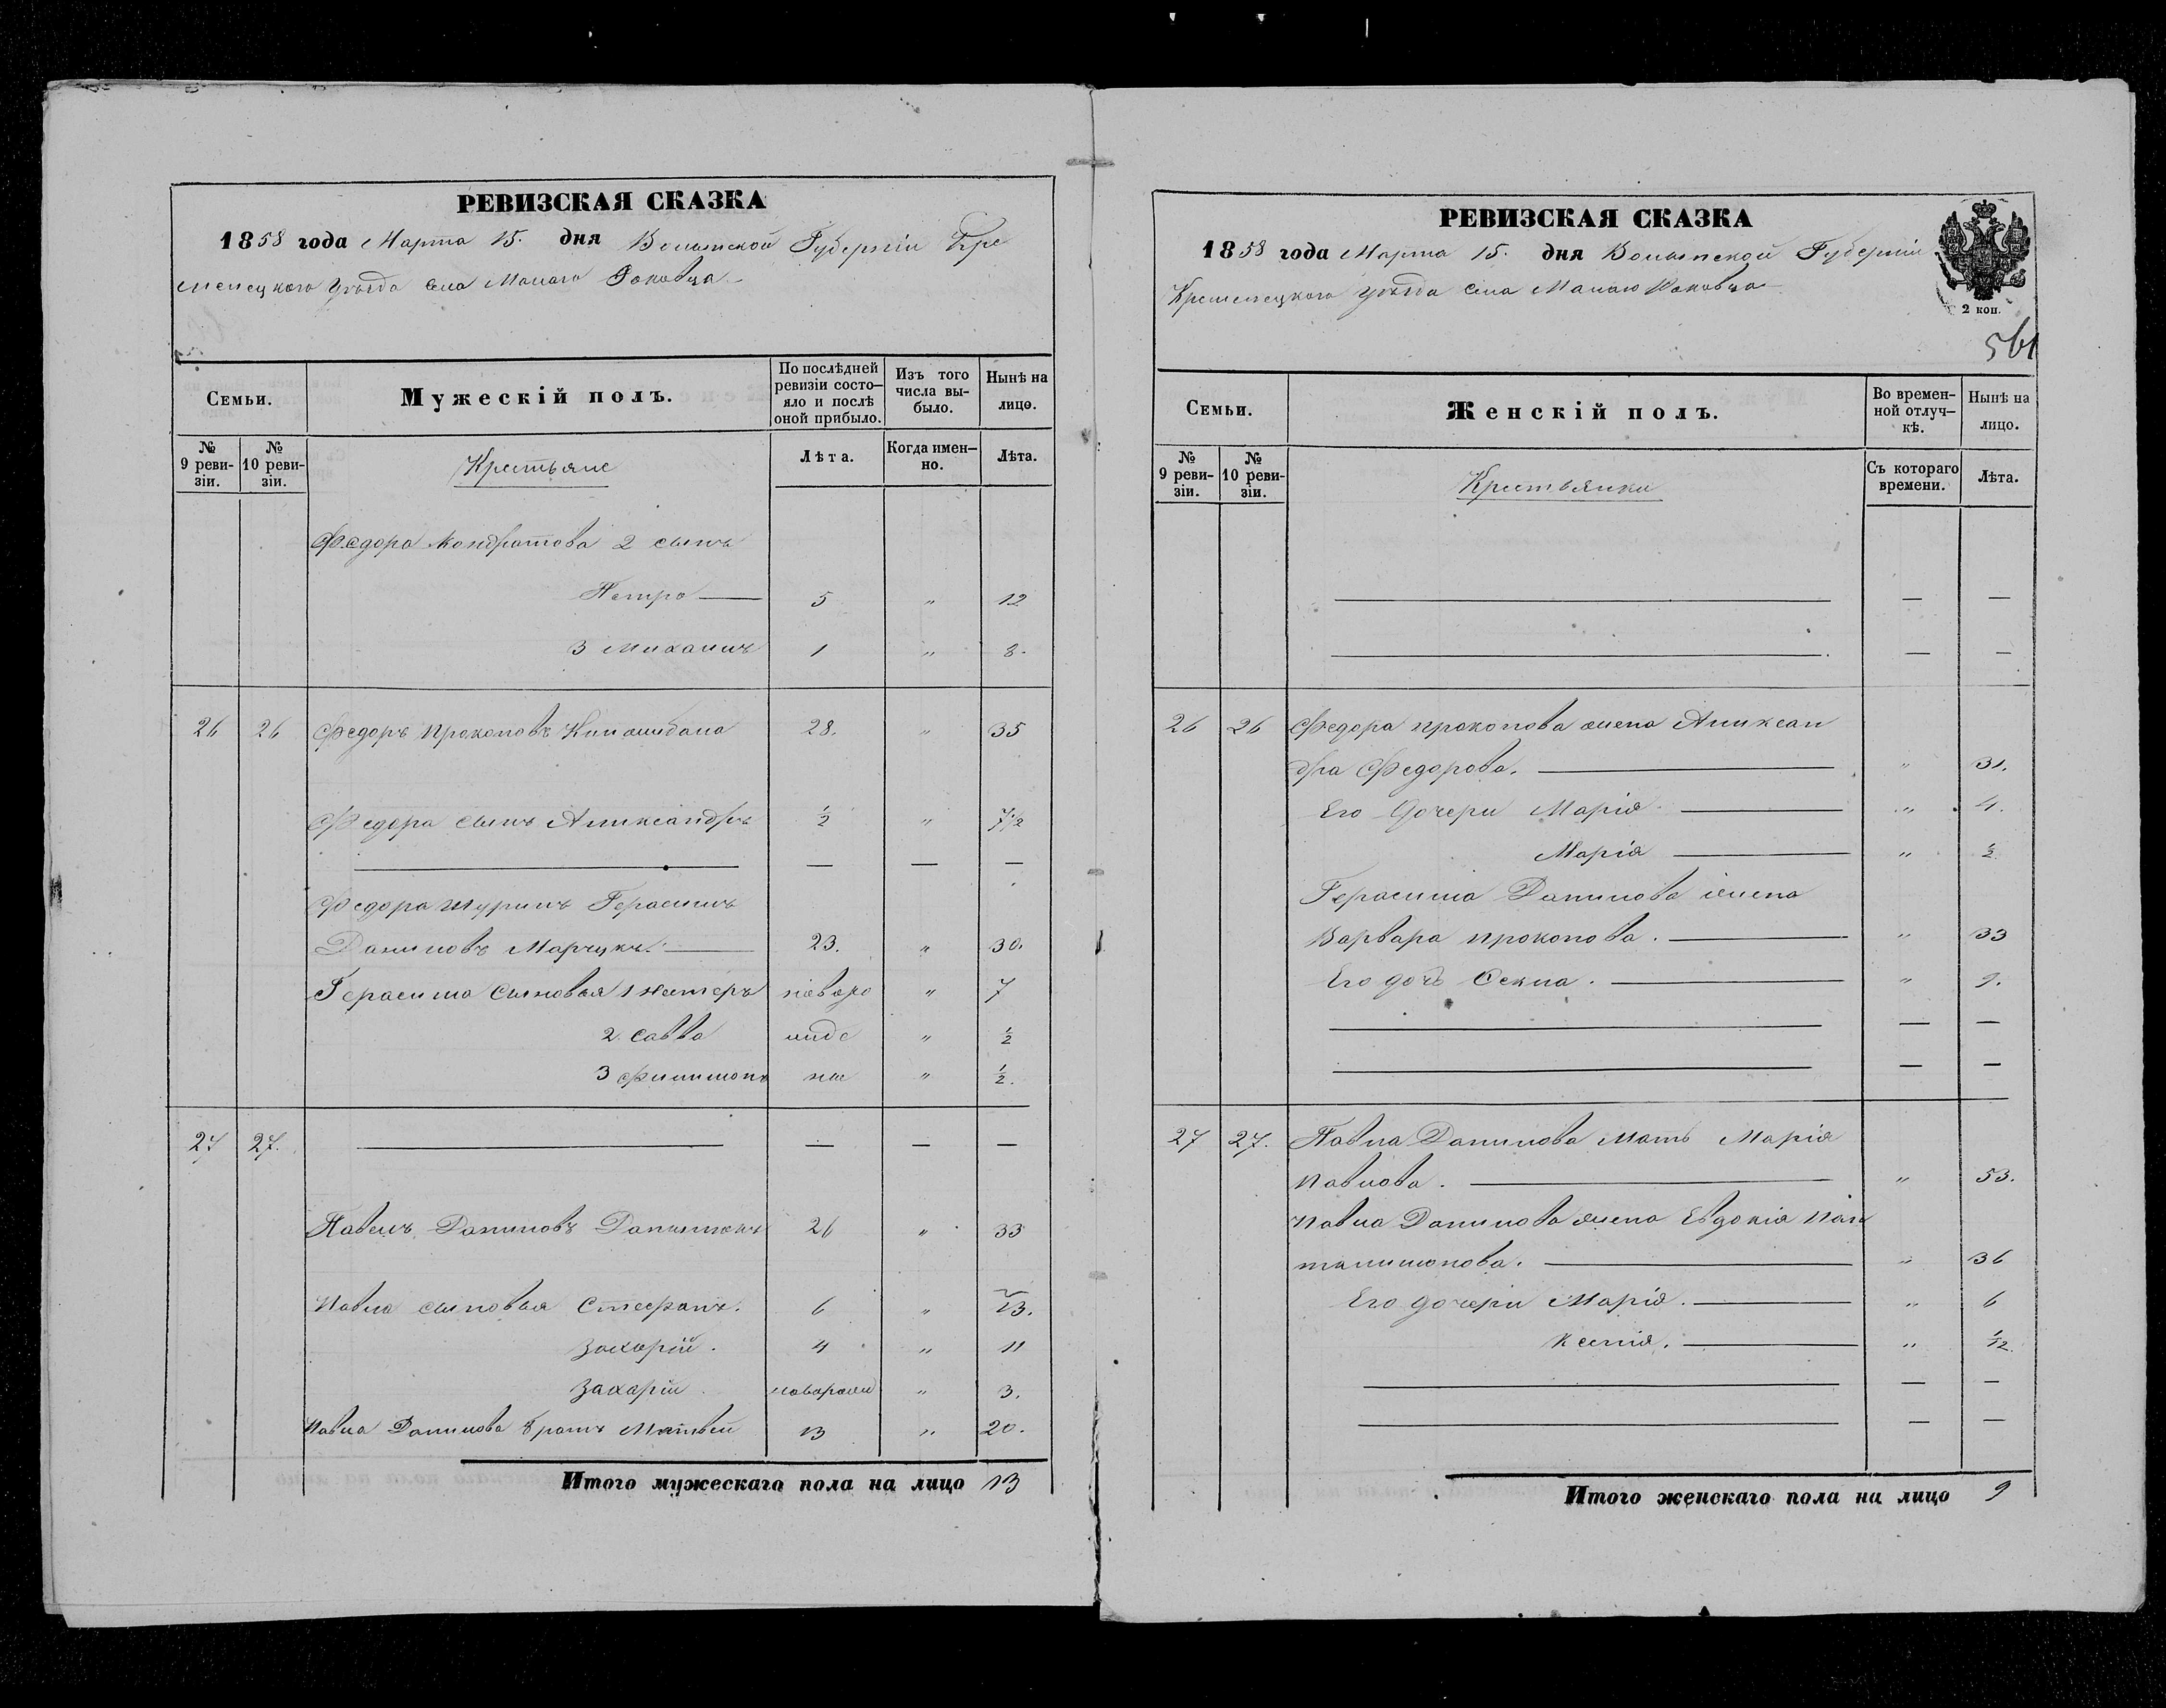 РЕВИЗСКАЯ СКАЗКА
1858 года Марта 15. дня Волынской Губерніи Кре
менецкого уѣзда села Малаго Раковца
Семьи.
Мужескій полъ.
По послѣдней ревизіи состояло и послѣ оной прибыло.
Изъ того числа выбыло.
Нынѣ на лицо.
№ 9 ревизіи.
№ 10 ревизіи.
Крестьяне
Лѣта.
Когда именно.
Лѣта.
Федора Кондратова 2 сынъ
Петро — 5 " 12
3 Михаилъ 1 " 8.
26 26 Федоръ Прокоповъ 28. " 35
Федора сынъ Александръ ½ " 7½
— — — —
Федора шуринъ Герасимъ
Даниловъ Марчукъ. — 23. " 30.
Герасима сыновья 1 Нестеръ новоро " 7
2 Савва жде " ½
3 Филимонъ ніи " ½.
27 27. — — — —
Павелъ Даниловъ Данилюкъ 26 " 33
Павла сыновья Стефанъ. 6 " 13.
Захарій. 4 " 11
Захарій новорожд " 3.
Павла Данилова братъ Матвей 13 " 20.
Итого мужескаго пола на лицо 13
РЕВИЗСКАЯ СКАЗКА
1858 года Марта 15. дня Волынской Губерніи
Кременецкого уѣзда села Малаго Раковца
2 коп.
561
Семьи.
Женскій полъ.
Во временной отлучкѣ.
Нынѣ на лицо.
№ 9 ревизіи.
№ 10 ревизіи.
Крестьянки
Съ котораго времени.
Лѣта.
— — —
— — —
26 26 Федора Прокопова жена Александ
дра Федорова. — " 31.
Его дочери Марія — " 4.
Марія — " ½
Герасима Данилова жена
Варвара Прокопова. — " 33
Его дочь Секла. — " 9.
— — —
— — —
27 27. Павла Данилова мать Марія
Павлова. — " 53.
Павла Данилова жена Евдокія Пан
талимонова. — " 36
Его дочери Марія. — " 6
Ксенія. — " 1/12
— — —
— — —
Итого женскаго пола на лицо 9